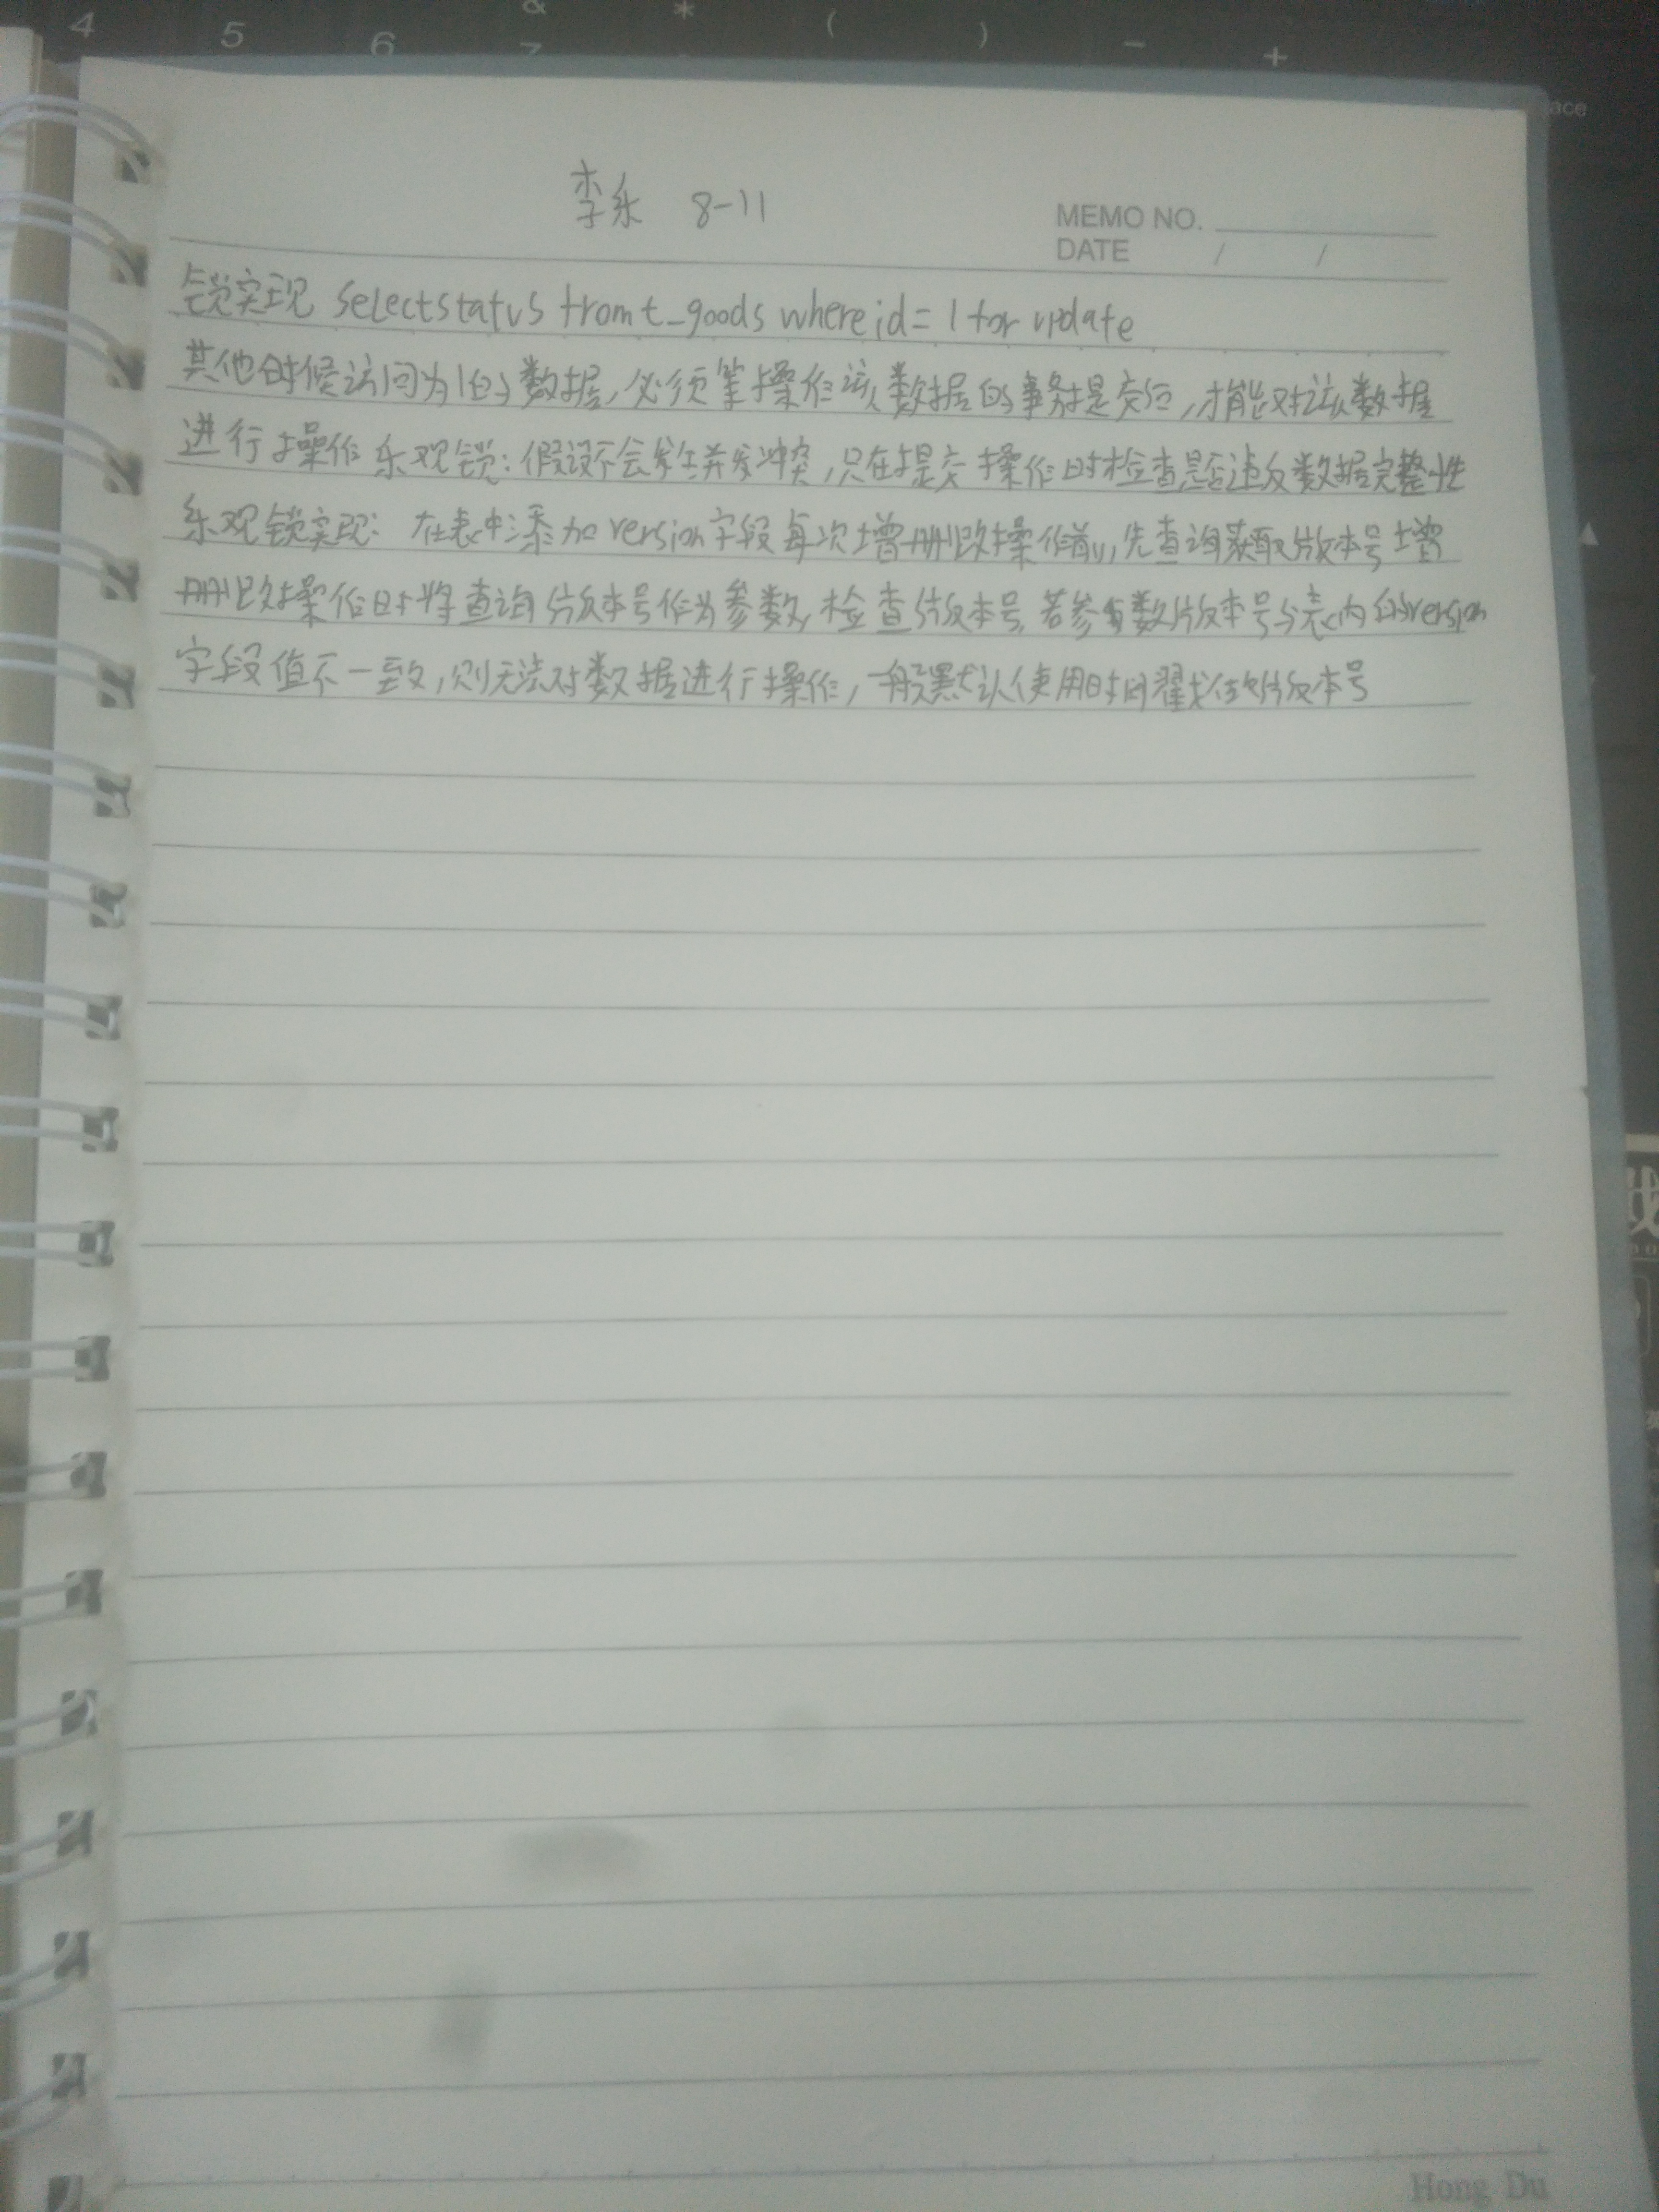 4 5 6 & 7 * ( ) - +
ace
李乐 8-11
MEMO NO.
DATE / /
锁实现 select status from t_goods where id = 1 for update
其他时候访问为1的数据,必须等操作该数据的事务提交后,才能对该数据
进行操作 乐观锁:假设不会发生并发冲突,只在提交操作时检查是否违反数据完整性
乐观锁实现: 在表中添加version字段每次增删改操作前,先查询获取版本号增
删改操作时将查询版本号作为参数,检查版本号,若参数版本号与表内的version
字段值不一致,则无法对数据进行操作,一般默认使用时间戳作为版本号
Hong Du